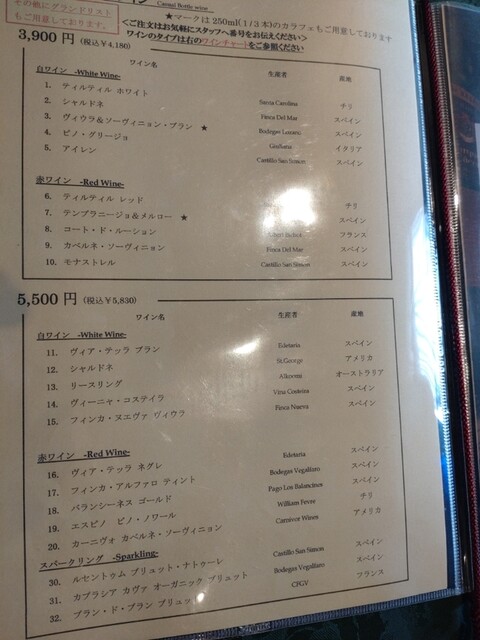 その他にグランドリスト
もご用意しております。
Casual Bottle wine
★マークは 250ml(1/3本)のカラフェもご用意しております
<ご注文はお気軽にスタッフへ番号をお伝えください>
ワインのタイプは右のワインチャートをご参照ください
3,900 円 (税込¥4,180)
ワイン名 生産者 産地
白ワイン -White Wine-
1. ティルティル ホワイト Santa Carolina チリ
2. シャルドネ Finca Del Mar スペイン
3. ヴィウラ&ソーヴィニョン・ブラン ★ Bodegas Lozano スペイン
4. ピノ・グリージョ Giuliana イタリア
5. アイレン Castillo San Simon スペイン
赤ワイン -Red Wine-
6. ティルティル レッド チリ
7. テンプラニージョ&メルロー ★ スペイン
8. コート・ド・ルーション フランス
9. カベルネ・ソーヴィニョン Finca Del Mar スペイン
10. モナストレル Castillo San Simon スペイン
5,500 円 (税込¥5,830)
ワイン名 生産者 産地
白ワイン -White Wine-
11. ヴィア・テッラ ブラン Edetaria スペイン
12. シャルドネ St.George アメリカ
13. リースリング Alkoomi オーストラリア
14. ヴィーニャ・コステイラ Vina Costeira スペイン
15. フィンカ・ヌエヴァ ヴィウラ Finca Nueva スペイン
赤ワイン -Red Wine-
16. ヴィア・テッラ ネグレ Edetaria スペイン
17. フィンカ・アルファロ ティント Bodegas Vegalfaro スペイン
18. バランシーネス ゴールド Pago Los Balancinos スペイン
19. エスピノ ピノ・ノワール William Fevre チリ
20. カーニヴォ カベルネ・ソーヴィニョン Carnivor Wines アメリカ
スパークリング -Sparkling-
30. ルセントゥム ブリュット・ナトゥーレ Castillo San Simon スペイン
31. カプラシア カヴァ オーガニック ブリュット Bodegas Vegalfaro スペイン
32. ブラン・ド・ブラン ブリュット CFGV フランス